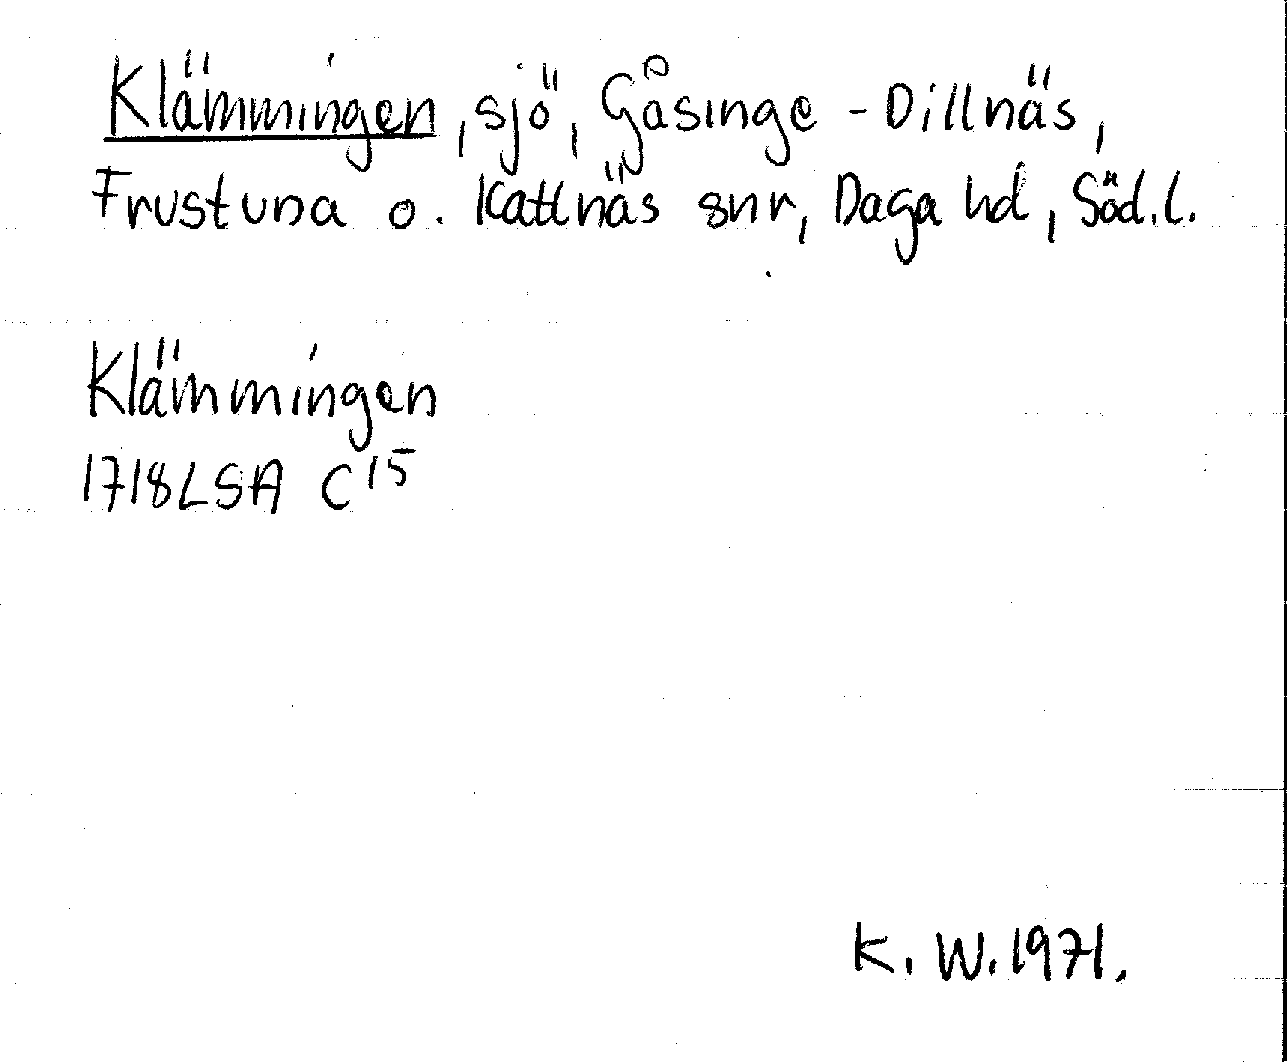 Klämmingen, sjö, Gåsinge-Dillnäs,
Frustuna o. Kattnäs snr, Daga hd, Söd.l.
Klämmingen
1718 LSA C 15
K. W. 1971.